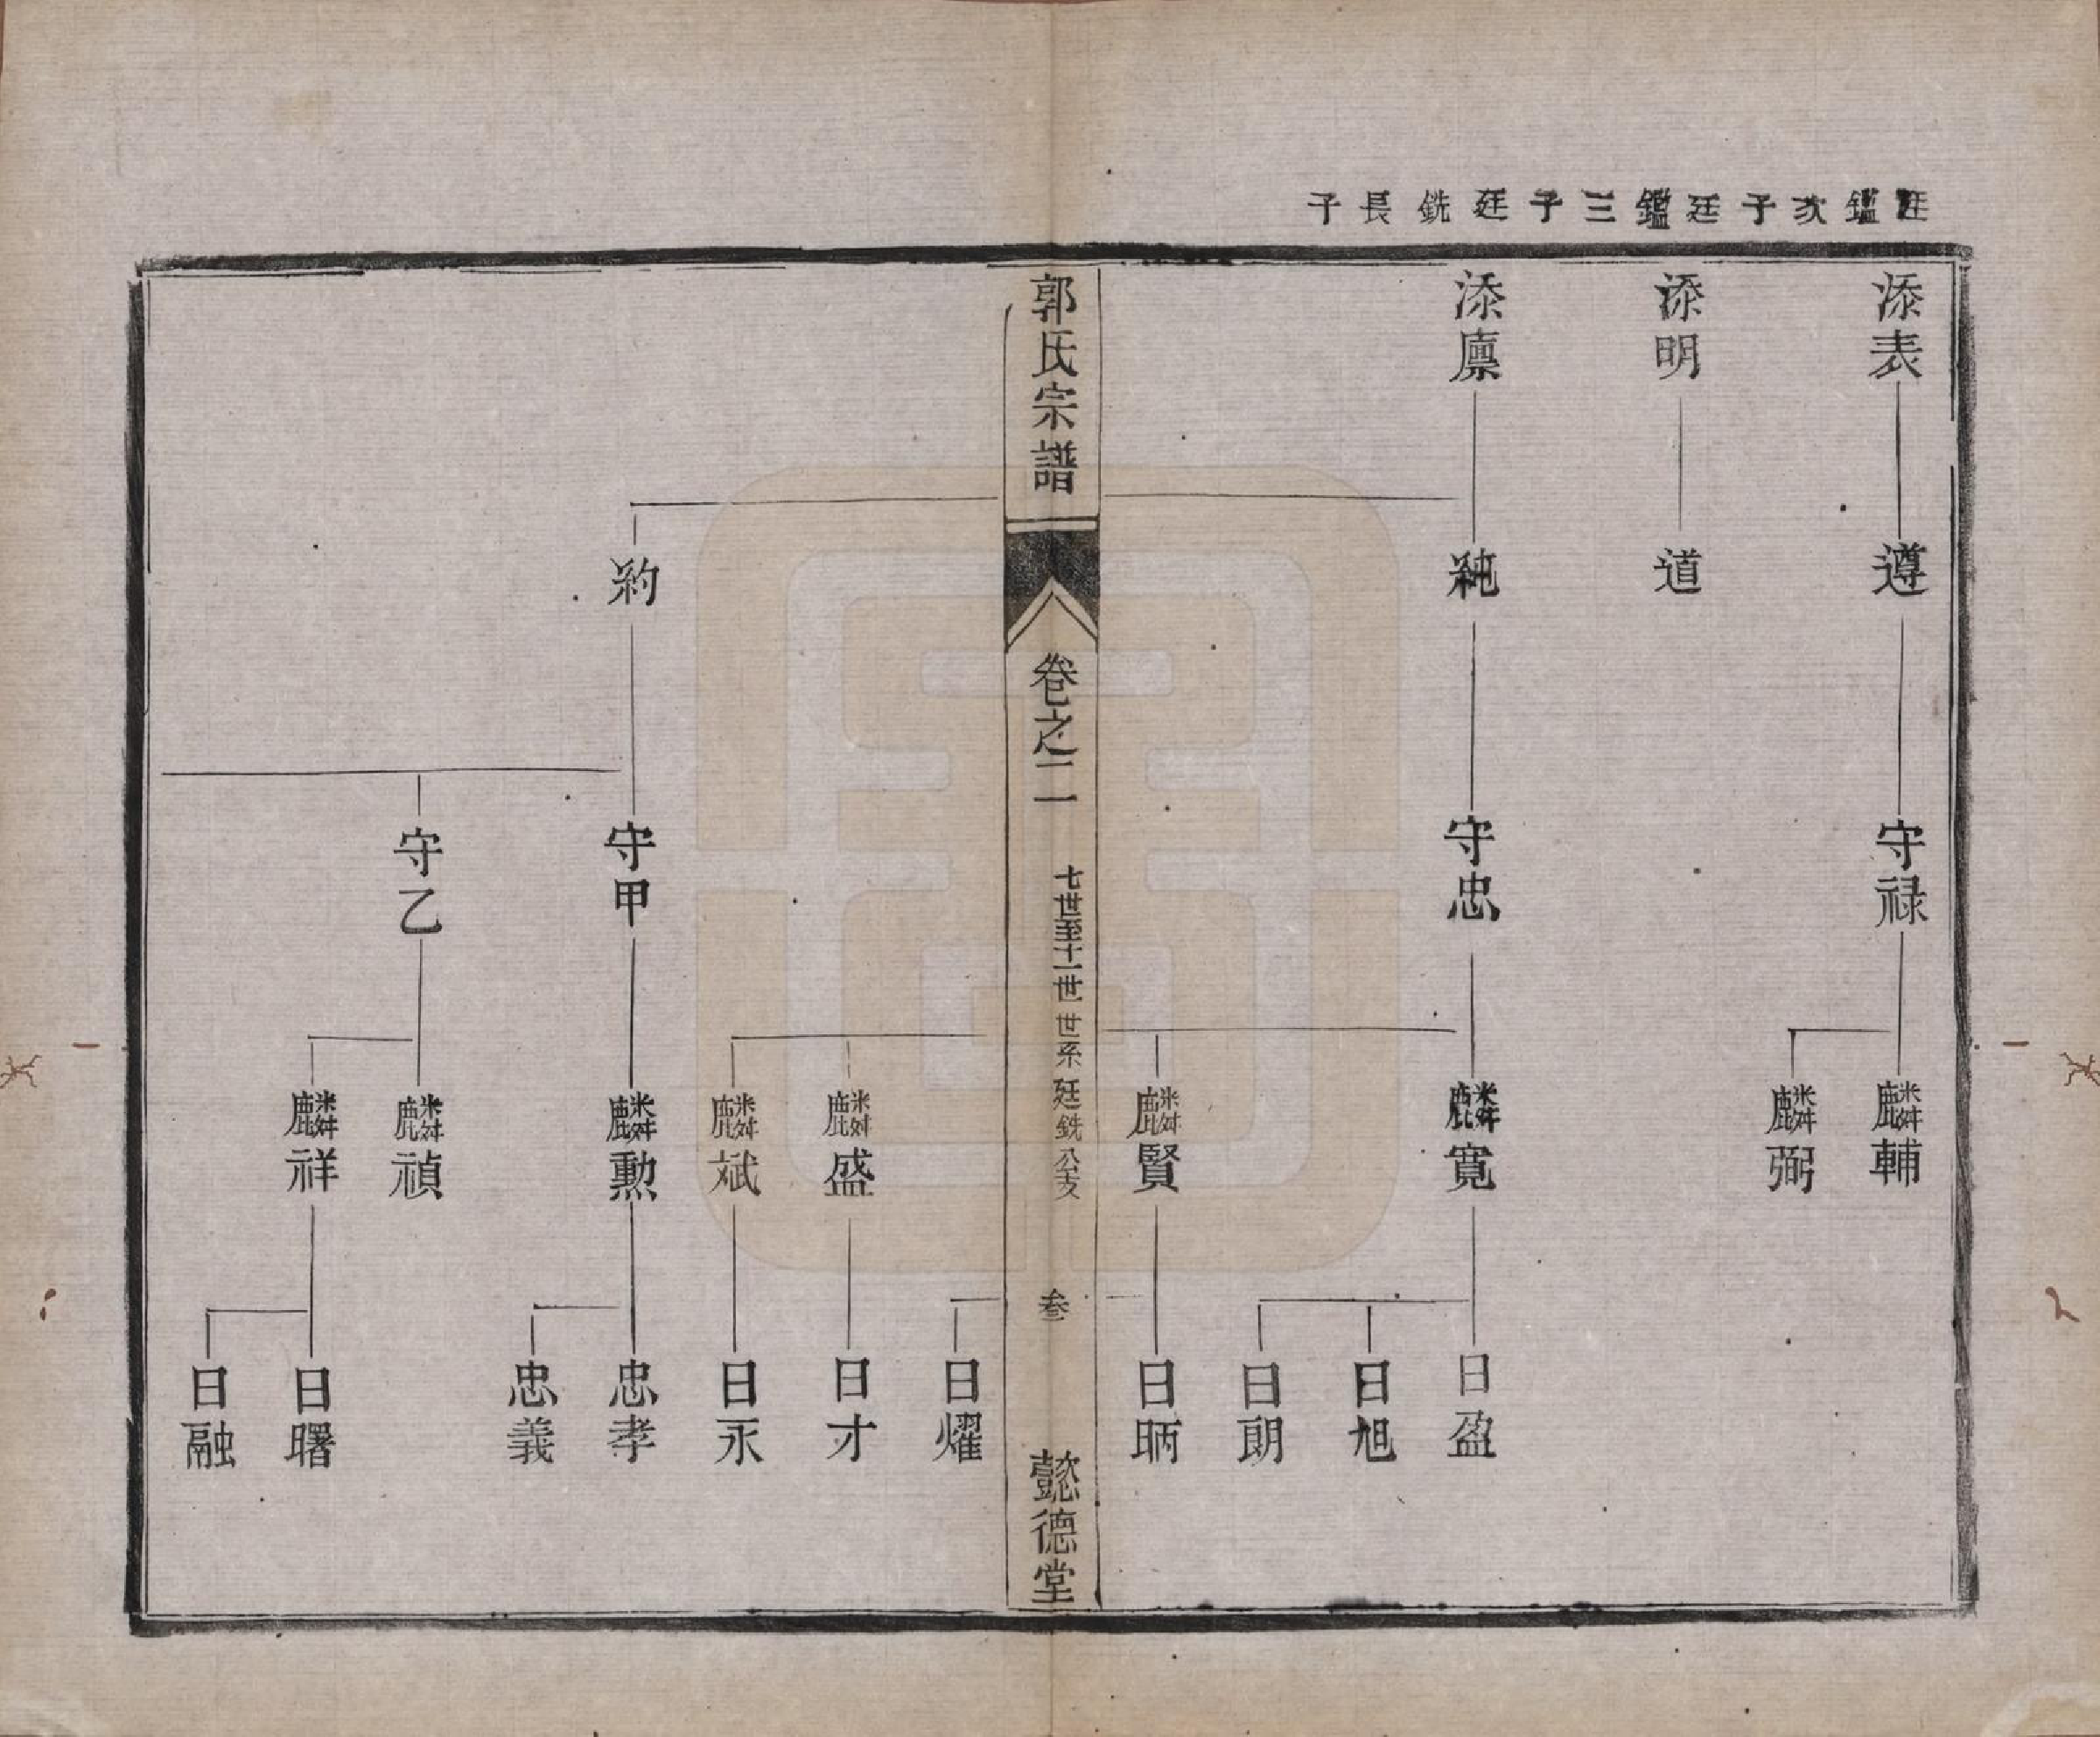 廷鑑次子廷鑑三子廷銑長子
添表
遵
守禄
麟輔
麟弼
添明
道
添廪
純
守忠
麟寬
日盈
日旭
日朗
麟賢
日昞
郭氏宗譜
卷之二
七世至十一世世系廷銑公支
叁
懿德堂
日耀
麟盛
日才
麟斌
日永
約
守甲
麟勲
忠孝
忠義
守乙
麟禎
麟祥
日曙
日融